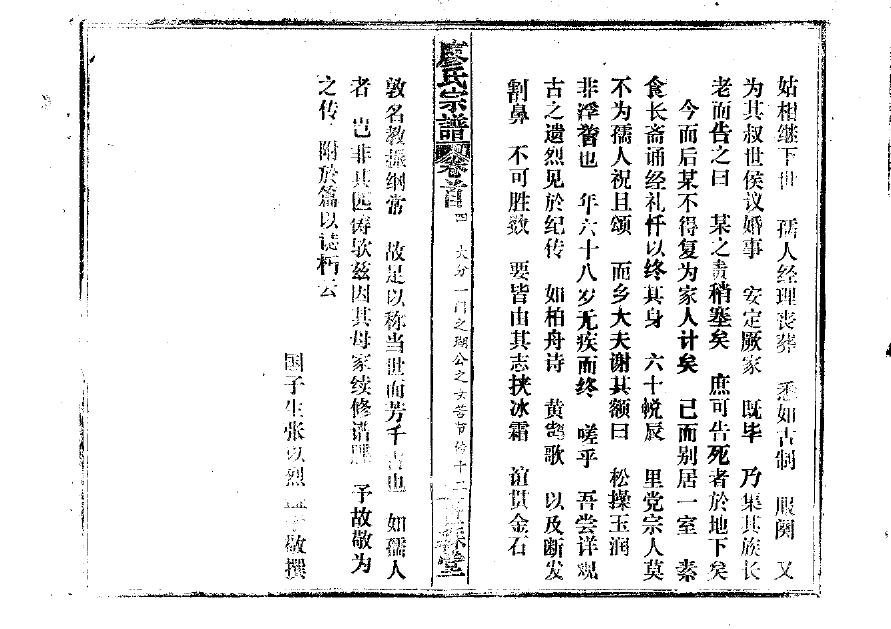 姑相继下世 孺人经理丧葬 悉如古制 服阕 又
为其叔世侯议婚事 安定厥家 既毕 乃集其族长
老而告之曰 某之责稍塞矣 庶可告死者於地下矣
今而后某不得复为家人计矣 已而别居一室 素
食长斋诵经礼忏以终其身 六十帨辰 里党宗人莫
不为孺人祝且颂 而乡大夫谢其额曰 松操玉润
非浮誉也 年六十八岁无疾而终 嗟乎 吾尝详观
古之遗烈见於纪传 如柏舟诗 黄鹄歌 以及断发
割鼻 不可胜数 要皆由其志挟冰霜 谊贯金石
廖氏宗譜 卷首 四 大分一门之瑚公之女苦节传十二 堂
敦名教振纲常 故足以称当世而芳千古也 如孺人
者 岂非其匹俦欤兹因其母家续修谱牒 予故敬为
之传 附於篇以志朽云
国子生张以烈 敬撰